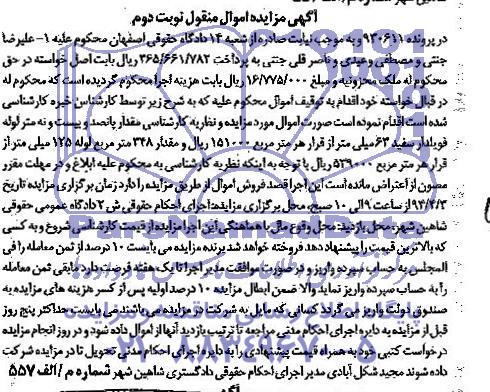 آگهی مزایده اموال منقول نوبت دوم
در پرونده ۹۳۰۶۱۱ و به موجب نیابت صادره از شعبه ۱۴ دادگاه حقوقی اصفهان محکوم علیه ۱- علیرضا
جنتی و مصطفی وعیدی و ناصر قلی جنتی به پرداخت ۳۶۵/۶۶۱/۷۸۲ ریال بابت اصل خواسته در حق
محکوم له ملک محزونیه و مبلغ ۱۶/۷۷۵/۰۰۰ ریال بابت هزینه اجرا محکوم گردیده است که محکوم له
در قبال خواسته خود اقدام به توقیف اموال محکوم علیه که به شرح زیر توسط کارشناس خبره کارشناسی
شده است اقدام نموده است صورت اموال مورد مزایده و نظریه کارشناسی مقدار پانصد و بیست و نه متر لوله
فویلدار سفید ۶۳ میلی متر از قرار هر متر مربع ۱۵۱۰۰۰ ریال و مقدار ۳۴۸ متر مربع لوله ۱۲۵ میلی متر از
قرار هر متر مربع ۵۳۹۰۰۰ ریال با توجه به اینکه نظریه کارشناسی به محکوم علیه ابلاغ و در مهلت مقرر
مصون از اعتراض مانده است این اجرا قصد فروش اموال از طریق مزایده را دارد زمان برگزاری مزایده تاریخ
۹۴/۴/۳ از ساعت ۹ الی ۱۰ صبح، محل برگزاری مزایده: اجرای احکام حقوقی ش ۲ دادگاه عمومی حقوقی
شاهین شهر، محل بازدید: محل وقوع مال با هماهنگی این اجرا مزایده از قیمت کارشناسی شروع و به کسی
که بالاترین قیمت را پیشنهاد دهد فروخته خواهد شد برنده مزایده می بایست ۱۰ درصد از ثمن معامله را فی
المجلس به حساب سپرده واریز و در صورت موافقت مدیر اجرا تا یک هفته فرصت دارد مابقی ثمن معامله
را به حساب سپرده واریز نماید والا ضمن ابطال مزایده ۱۰ درصد اولیه پس از کسر هزینه های مزایده به
صندوق دولت واریز می گردد کسانی که مایل به شرکت در مزایده می باشند می بایست حداکثر پنج روز
قبل از مزایده به دایره اجرای احکام مدنی مراجعه تا ترتیب بازدید آنها از اموال داده شود و در روز انجام مزایده
درخواست کتبی خود به همراه قیمت پیشنهادی را به دایره اجرای احکام مدنی تحویل تا در مزایده شرکت
داده شوند مجید شکل آبادی مدیر اجرای احکام حقوقی دادگستری شاهین شهر شماره م/الف ۵۵۷